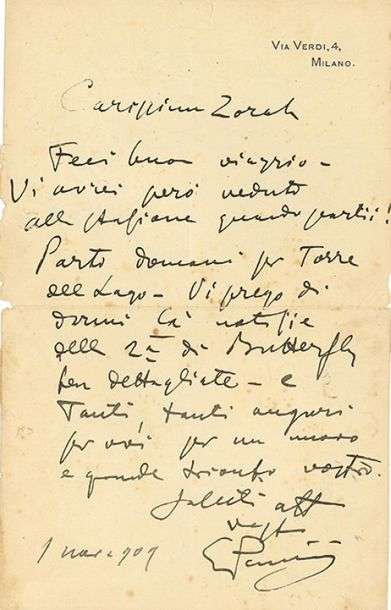 VIA VERDI, 4,
MILANO.
Carissimo Zorah
Feci buon viaggio -
Vi avrei però veduto
alla stazione quando partii!
Parto domani per Torre
del Lago - Vi prego di
darmi là notizie
della 2ª di Butterfly
ben dettagliate - e
Tanti, tanti auguri
per voi per un nuovo
e grande trionfo vostro.
Saluti aff
vost
GPuccini
1 909